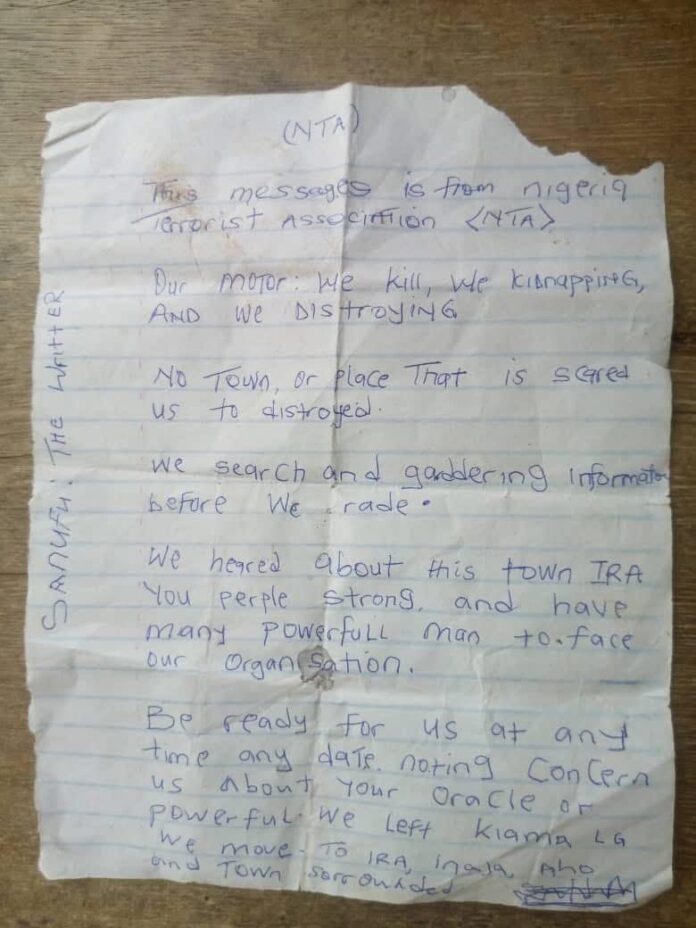 (NTA)
This messages is from nigeria
Terrorist Association <NTA>
Our motor: We kill, We KIDNAPPING,
AND We DISTROYING
NO TOWN, or place That is scared
us to distroyed.
We search and gaddering informatio
before We rade.
We heared about this town IRA
You perple strong. and have
many powerfull man to.face
our organisation.
Be ready for us at any
time any date. noting Concern
us about your oracle or
powerful. We Left kiama LG
We move. TO IRA, inaja, Aho
and TOWN sorrounded
SANUFU: THE WRITTER